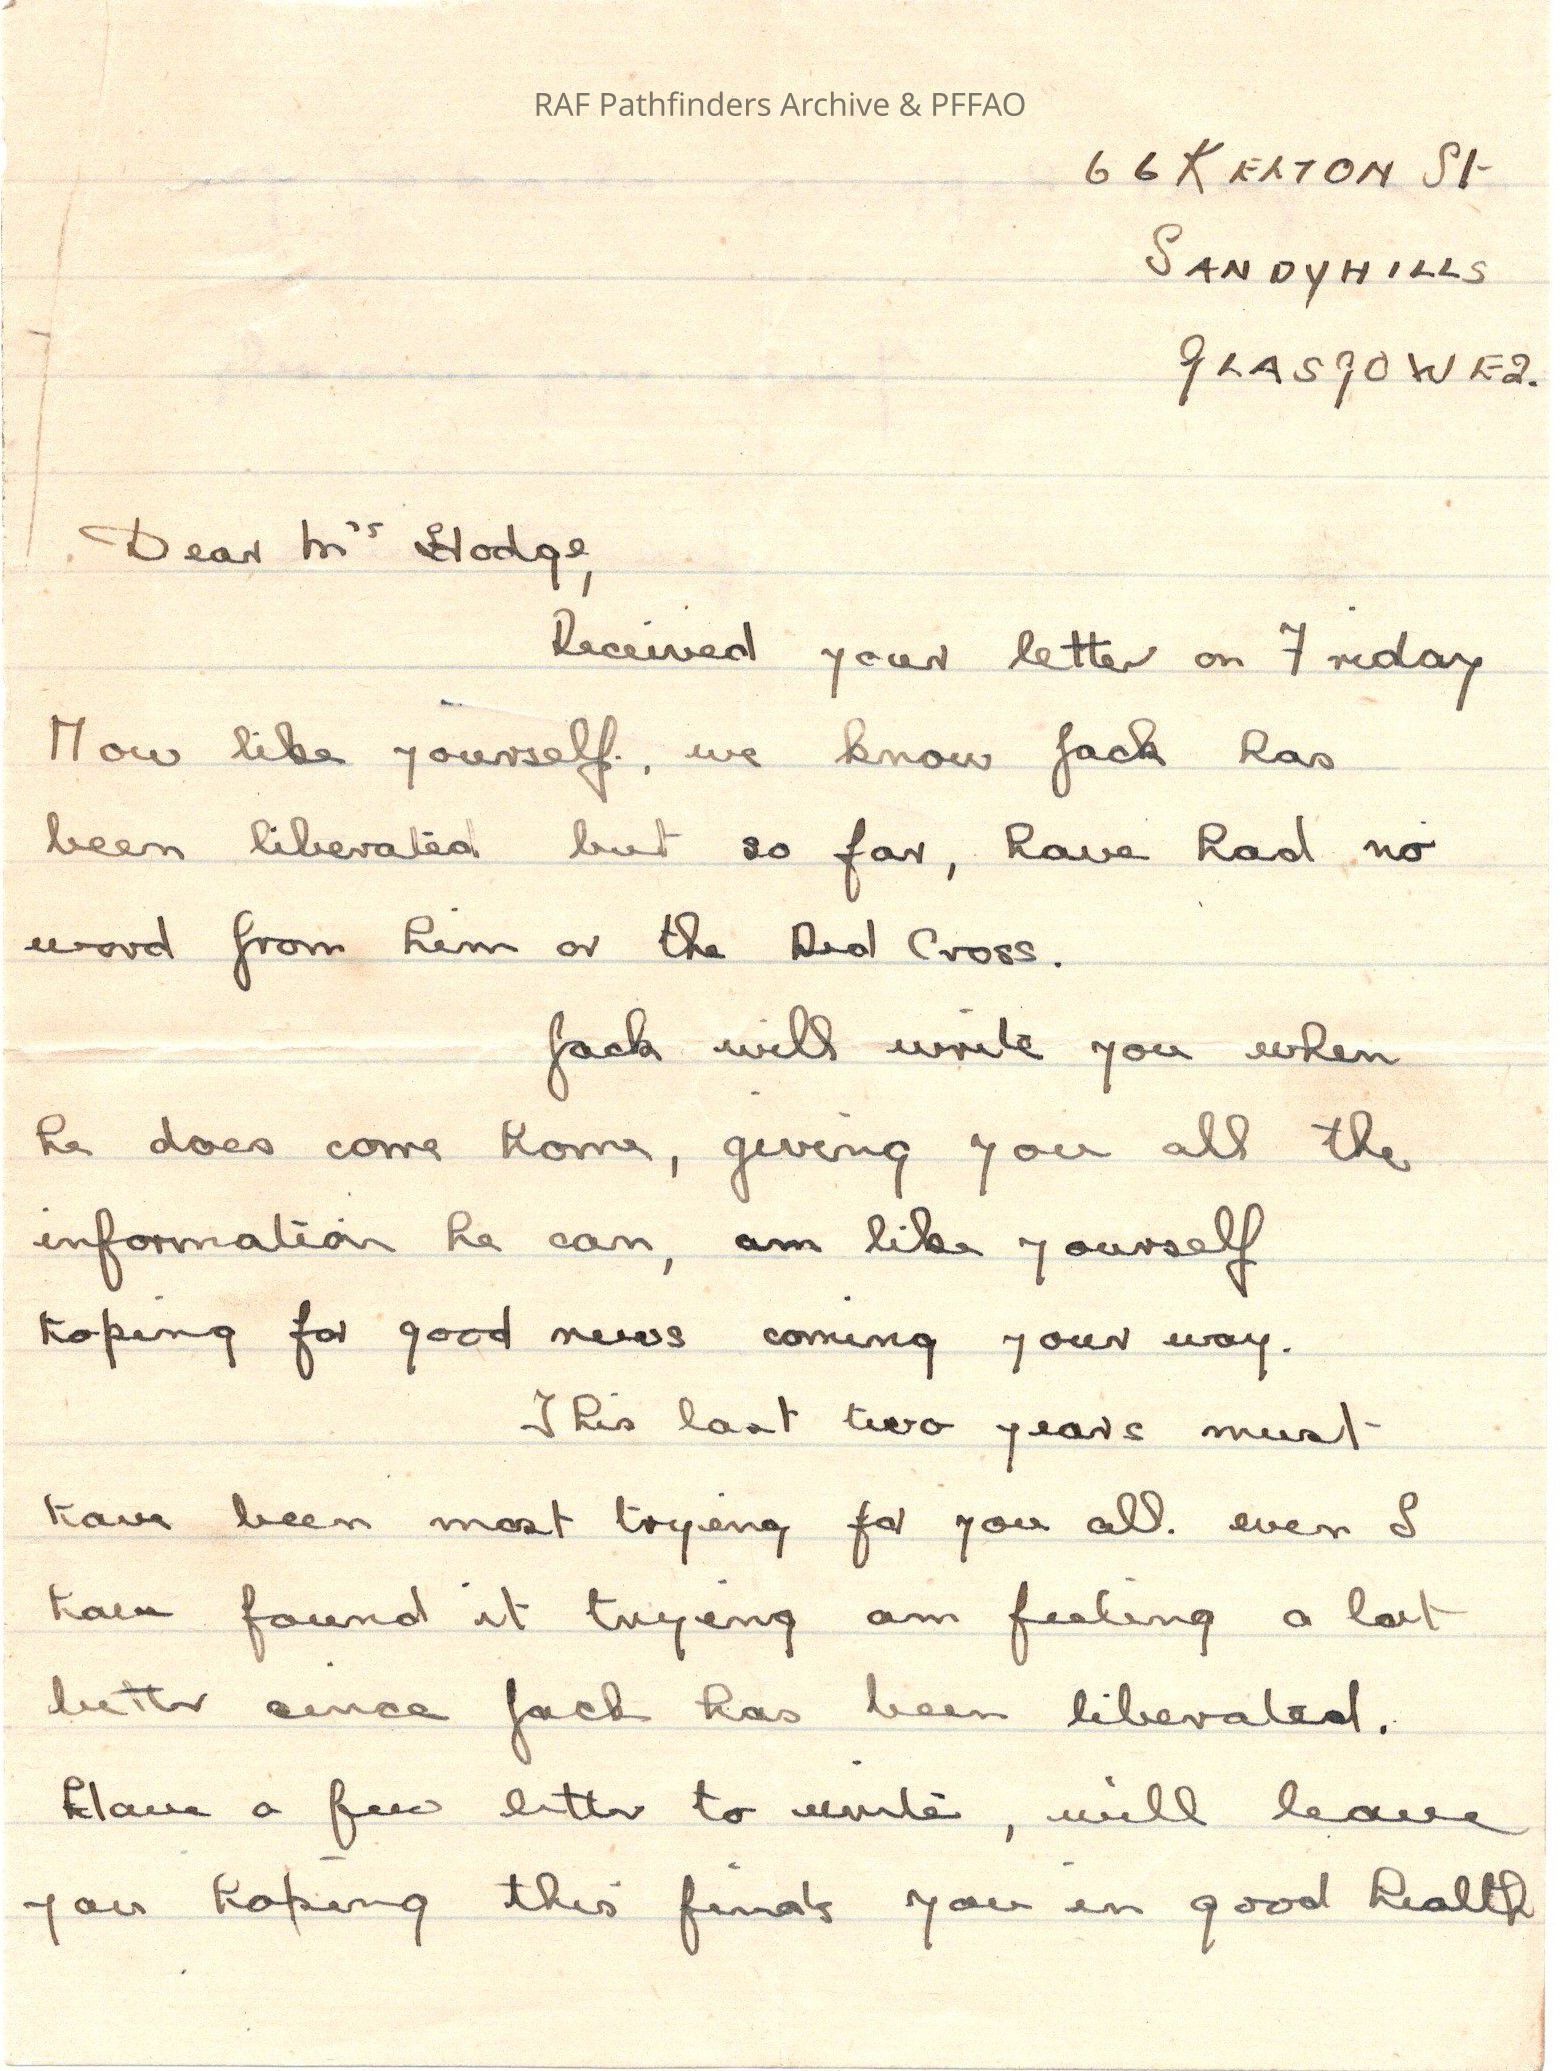 RAF Pathfinders Archive & PFFAO
66 KELTON St
SANDYHILLS
GLASGOW E2.
Dear Mrs Hodge,
Received your letter on Friday
Now like yourself, we know Jack has
been liberated but so far, have had no
word from him or the Red Cross.
Jack will write you when
he does come home, giving you all the
information he can, am like yourself
hoping for good news coming your way.
This last two years must
have been most trying for you all. even I
have found it trying am feeling a lot
better since Jack has been liberated.
Have a few letter to write, will leave
you hoping this finds you in good health